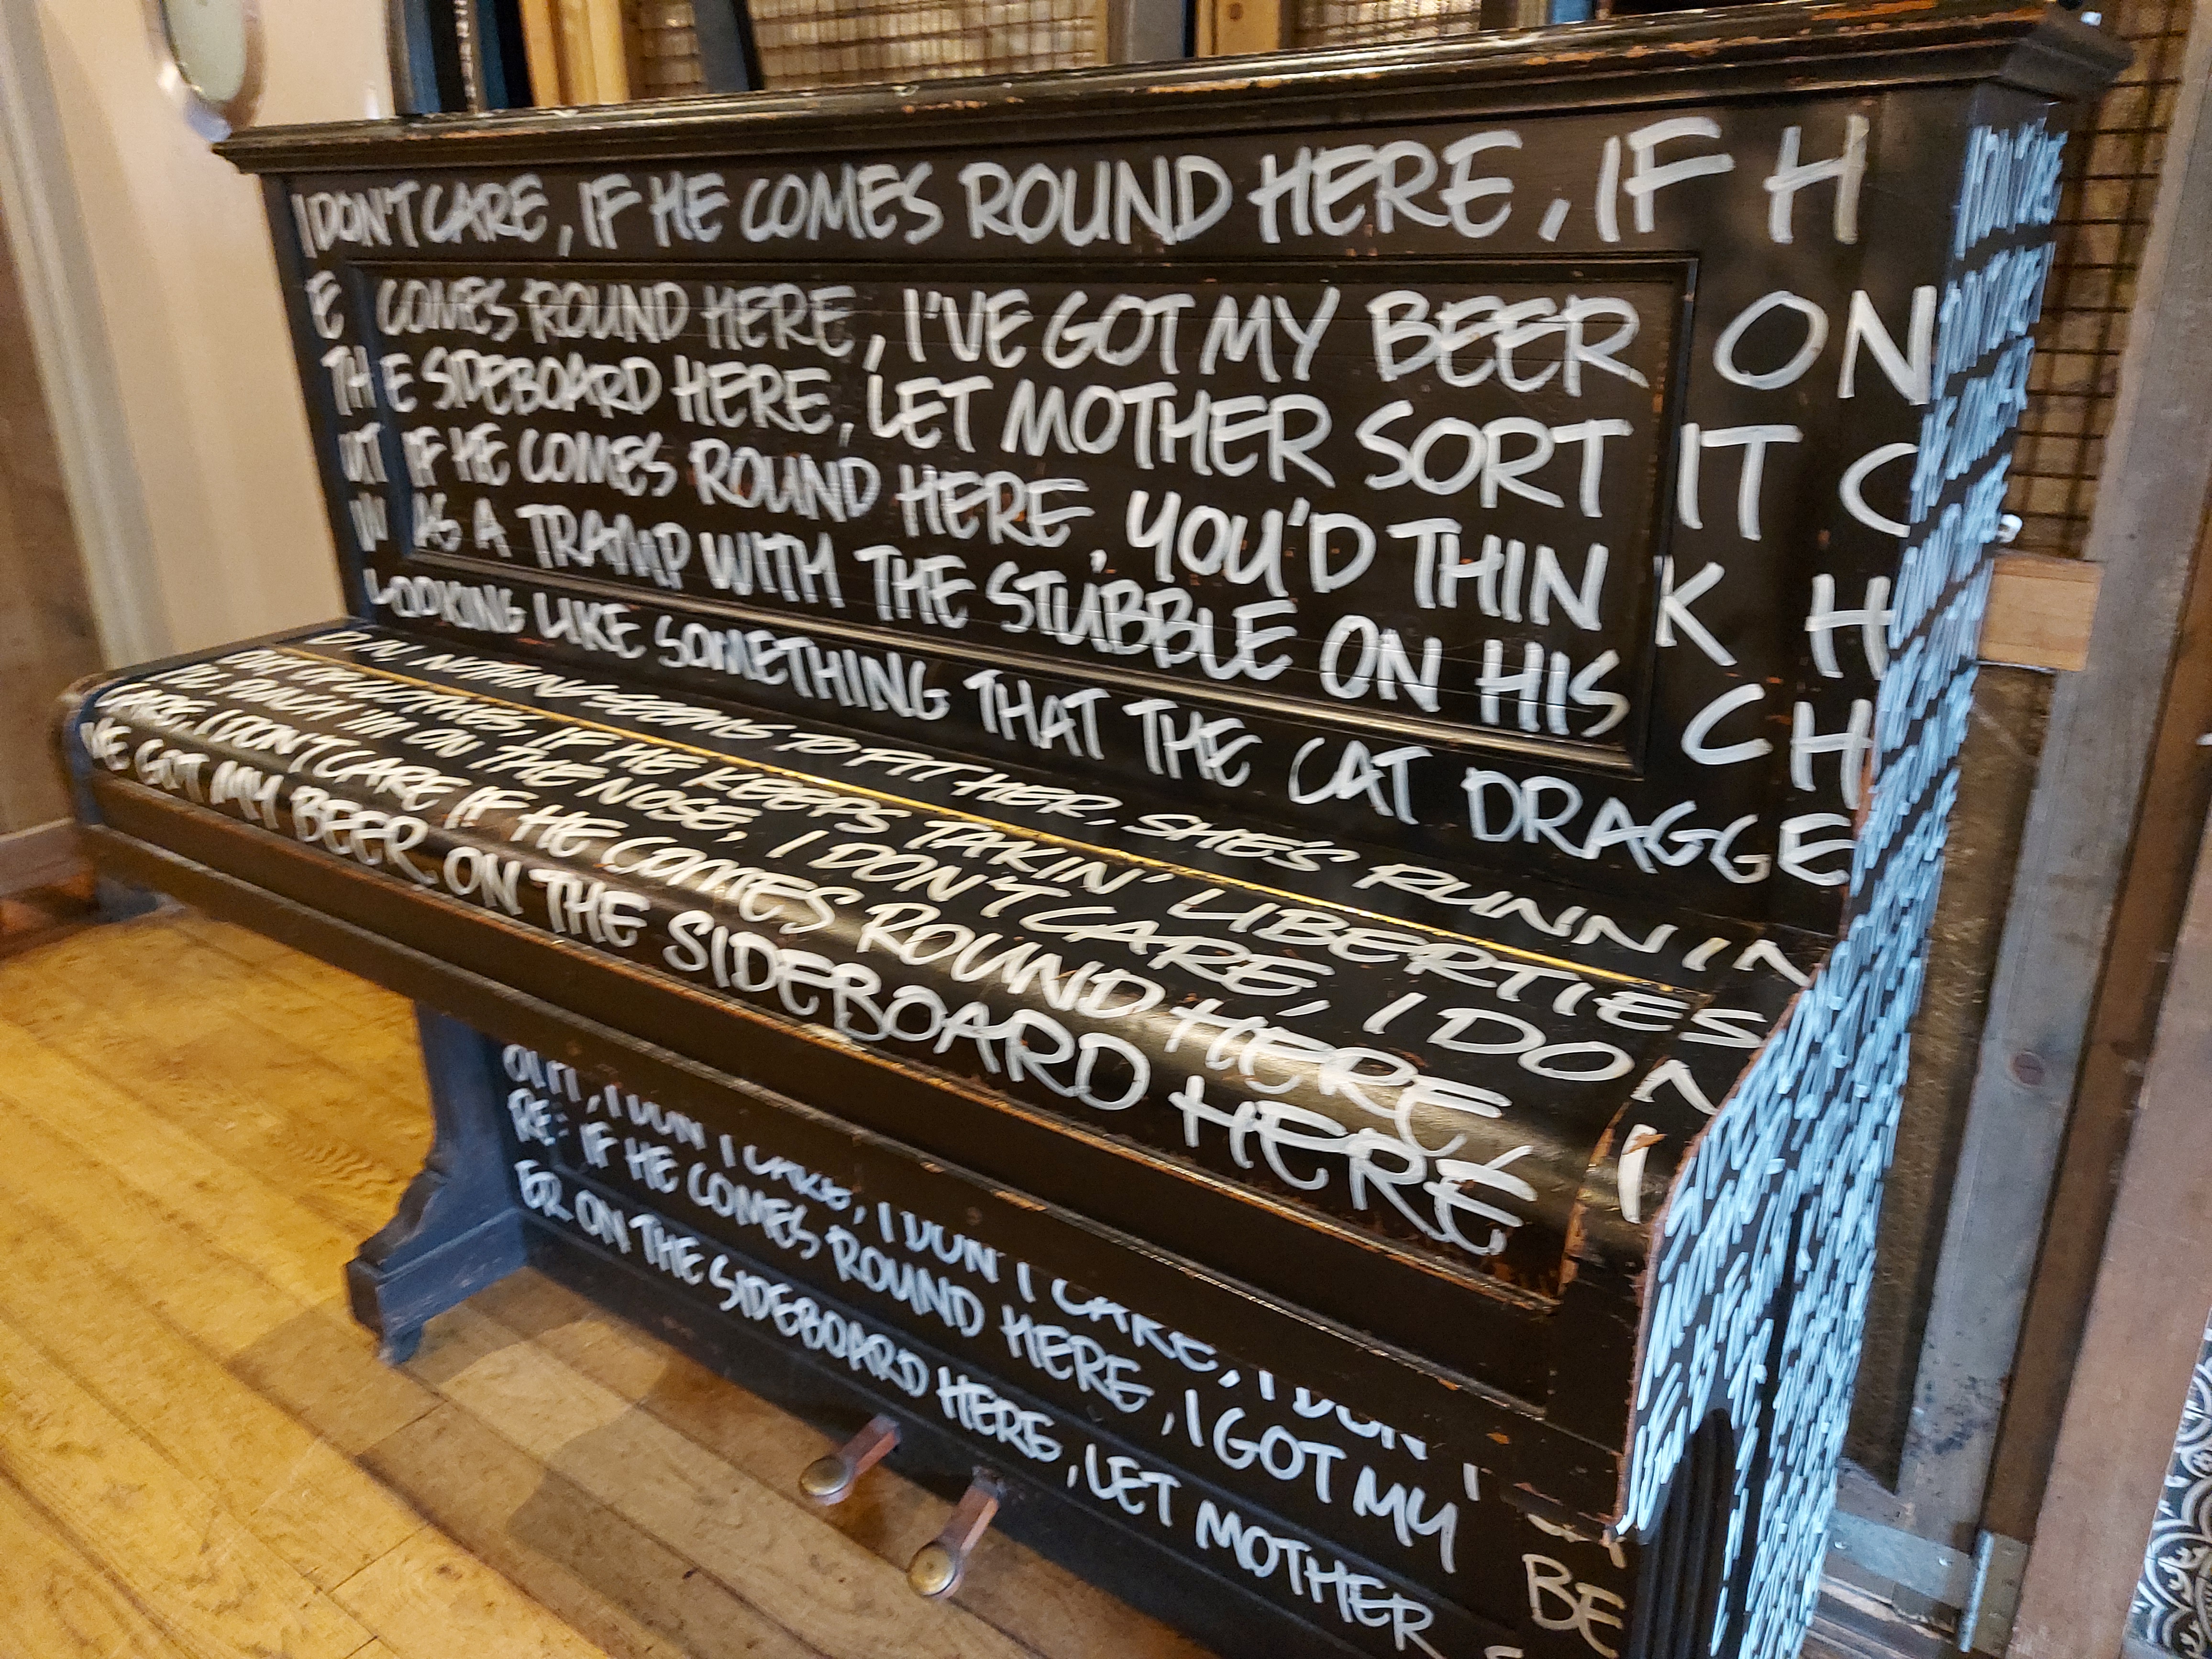 I DON'T CARE, IF HE COMES ROUND HERE, IF H
E COMES ROUND HERE, I'VE GOT MY BEER ON
THE SIDEBOARD HERE, LET MOTHER SORT IT O
UT IF HE COMES ROUND HERE, YOU'D THINK H
W AS A TRAMP WITH THE STUBBLE ON HIS CH
LOOKING LIKE SOMETHING THAT THE CAT DRAGGE
D IN, NOTHIN SEEMS TO FIT HER, SHE'S RUNNIN
IF HE KEEPS TAKIN' LIBERTIES
I'M ON THE NOSE, I DON'T CARE, I DON
CARE, I DON'T CARE IF HE COMES ROUND HERE, I
'VE GOT MY BEER ON THE SIDEBOARD HERE
OUT, I DON'T CARE, I DON'T CARE, I DON'T
RE: IF HE COMES ROUND HERE, I GOT MY BE
ER ON THE SIDEBOARD HERE, LET MOTHER S